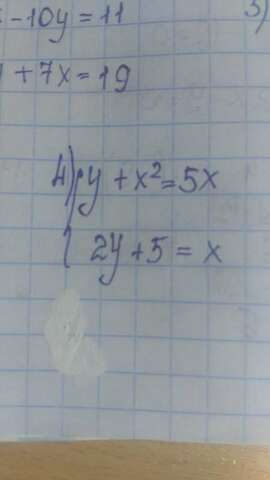 -10y = 11
5)
+ 7x = 19
4) y + x² = 5x
2y + 5 = x